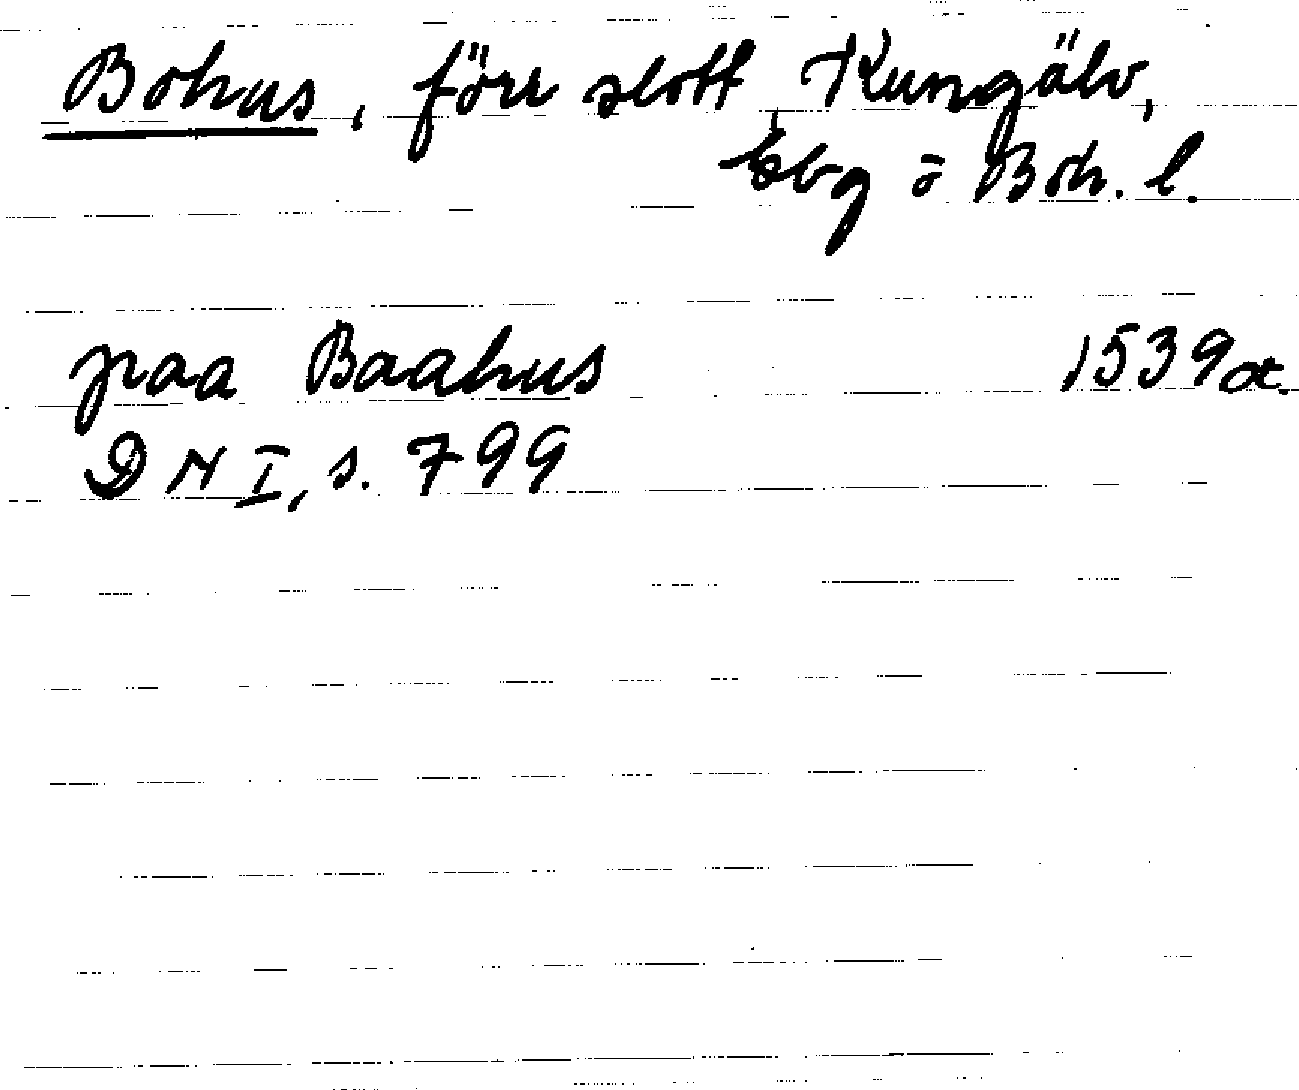 Bohus, förr slott, Kungälv,
Gbg o Boh. l.
paa Baahus 1539 or.
DN I, s. 799